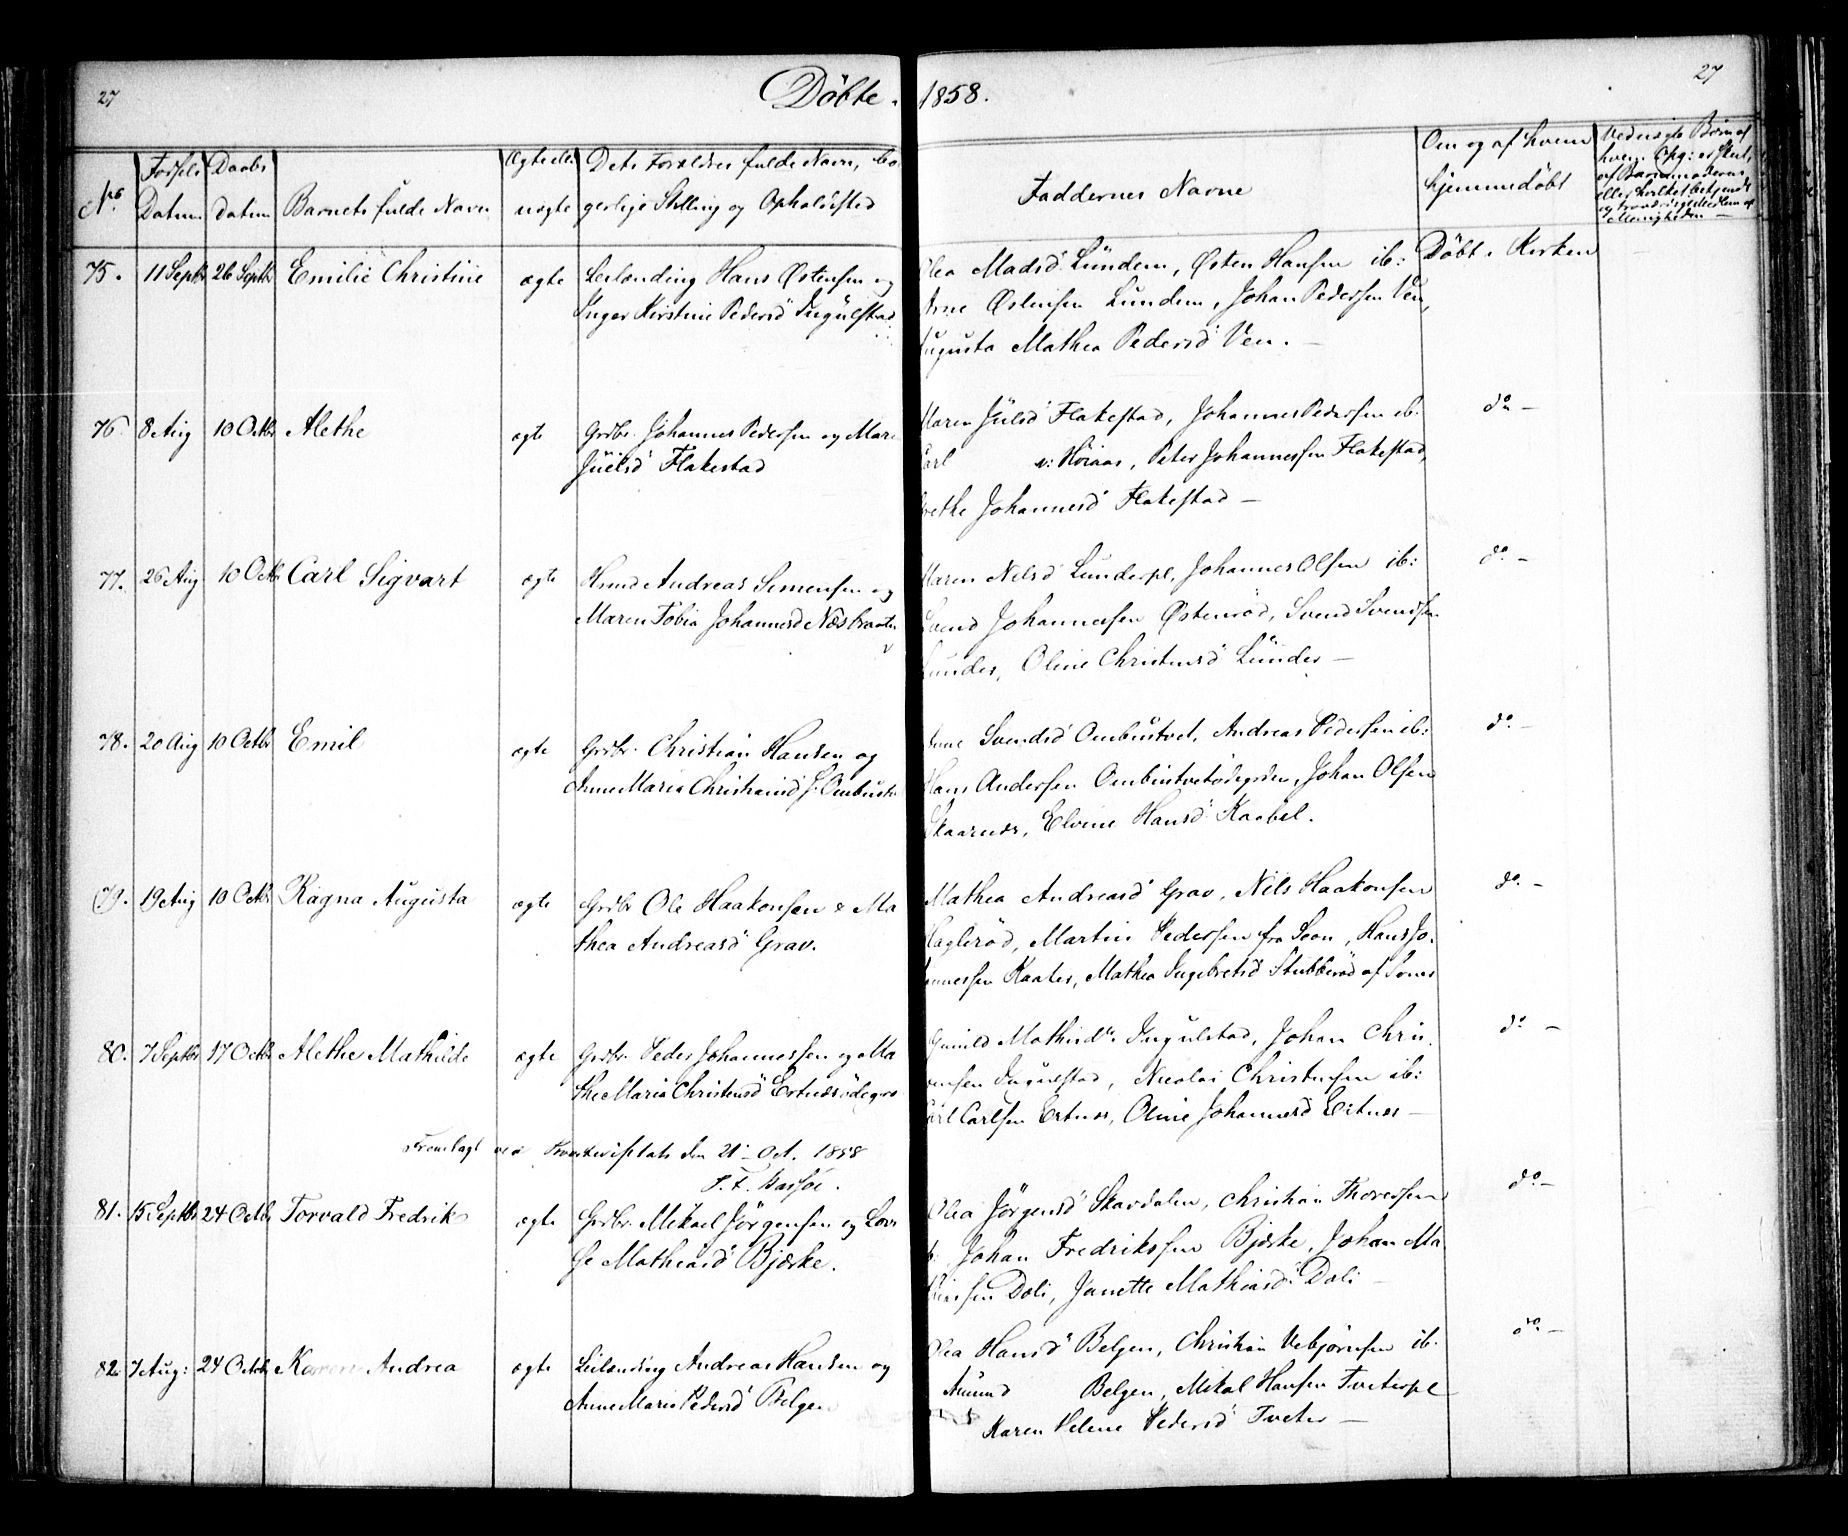 27
Döbte. 1858.
27
No
Födsels Datum
Daabs datum
Barnets fulde Navn
Ægte eller uægte
Dets Forældres fulde Navn, borgerlige Stilling og Opholdsted
Faddernes Navne
Om og af hvem hjemmedöbt
75. 11 Septbr 26 Septbr Emilie Christine ægte Leilending Hans Østensen og
Inger Kirstine Pedersd Ingulstad
Olea Madsd Lunden, Østen Hansen ib: Döbt i Kirken
Arne Østensen Lunden, Johan Pedersen Ven,
Augusta Mathea Pedersd Ven. —
76. 8 Aug 10 Octbr Alethe ægte Grdbr. Johannes Pedersen og Maren
Juelsd Flakestad
Maren Julsd Flakestad, Johannes Pedersen ib. do —
Carl v: Höiaas, Peter Johannessen Flakestad,
Grethe Johannesd Flakestad —
77. 26 Aug 10 Octbr Carl Sigvart ægte Hmd Andreas Simensen og
Maren Tobia Johannesd Næsbraaten
Maren Nilsd Lunderpl, Johannes Olsen ib: do —
Svend Johannessen Østenröd, Svend Svendsen
Lunder, Oline Christensd Lunder —
78. 20 Aug 10 Octbr Emil ægte Grdbr. Christian Hansen og
Anne Maria Christiansd
Anne Svendsd Ombustvet, Andreas Pedersen ib: do —
Hans Andersen Ombustvetödegrden, Johan Olsen
Skaarnes, Elvine Hansd Kaabel.
79. 19 Aug 10 Octbr Ragna Augusta ægte Grdbr Ole Haakonsen & Ma
thea Andreasd Grav.
Mathea Andreasd Grav, Nils Haakonsen do —
Hagleröd, Martin Pedersen fra Soon, Hans Jo-
hannessen Kaaler, Mathea Ingebretsd Stubberöd af Soner
80. 7 Septbr 17 Octbr Alethe Mathilde ægte Grdbr. Peder Johannessen og Ma
the Maria Christensd Ertnesödegrd
Gunild Mathisd Ingulstad, Johan Chris- do —
tensen Ingulstad, Nicolai Christensen ib:
Carl Carlsen Ertnes, Oline Johannesd Eitnes —
Fremlagt ved den 21 Oct. 1858
81. 15 Septbr 24 Octbr Torvald Fredrik ægte Grdbr. Mikael Jörgensen og Lovi
se Mathiasd Bjerke.
Olea Jörgensd Skavdalen, Christian Thoressen do —
ib. Johan Fredriksen Bjerke, Johan Ma
thisen Dali, Janette Mathiasd Dali —
82. 7 Aug: 24 Octbr Karen Andrea ægte Leilending Andreas Hansen og
Anne Marie Pedersd Belgen
Olea Hansd Belgen, Christian Vebjörnsen ib. do —
Amund Belgen, Mikal Hansen Tveterpl
Karen Helene Pedersd Tveter —